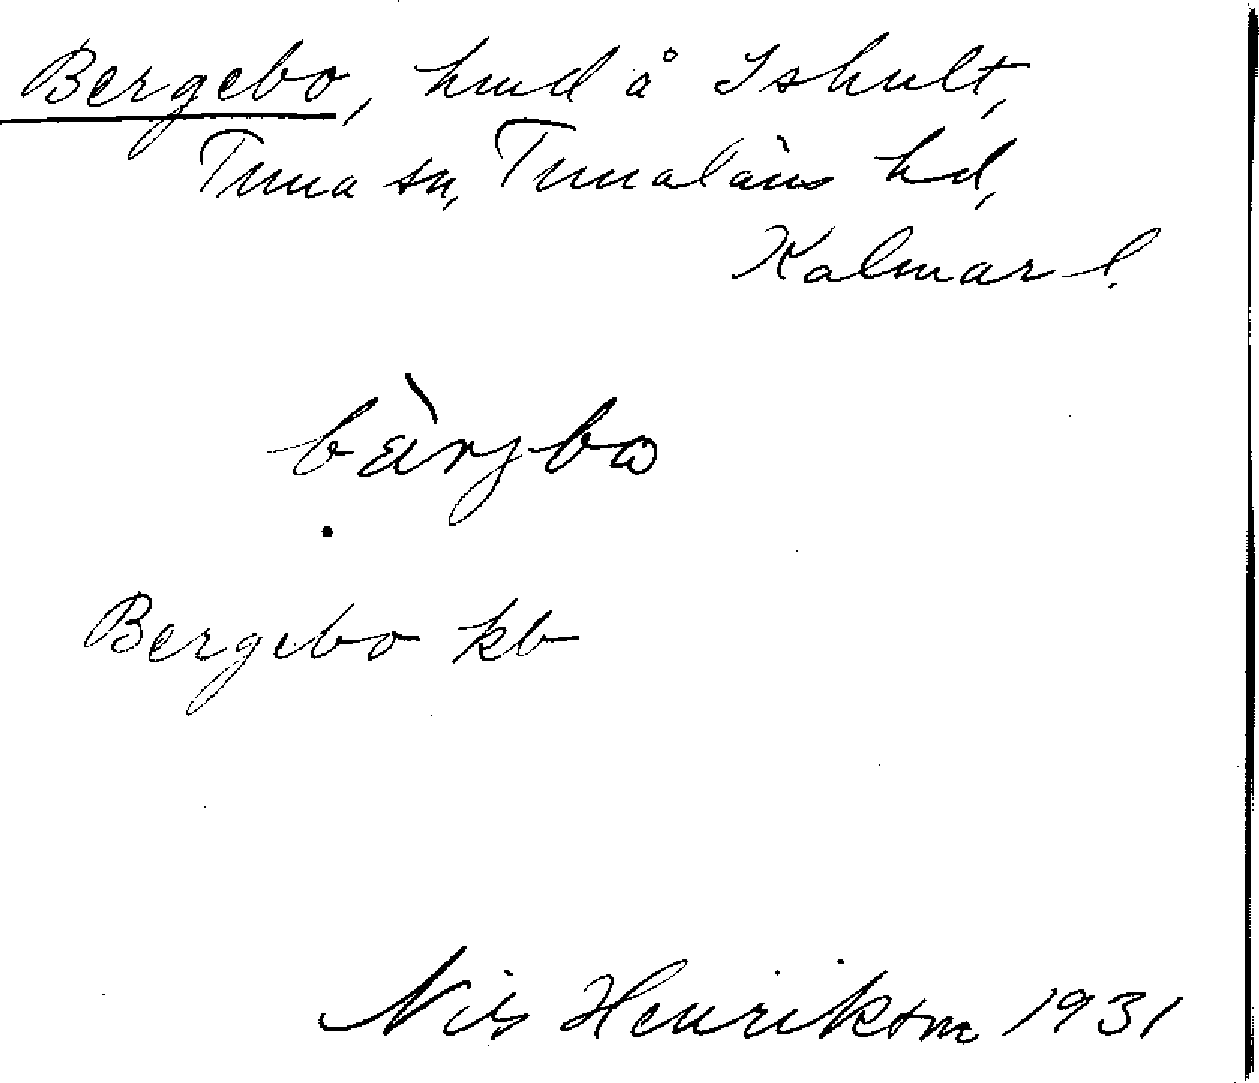 Bergebo, hmd å Ishult,
Tuna sn, Tunaläns hd,
Kalmar l.
bàrjbω
Bergebo kb
Nils Henrikson 1931